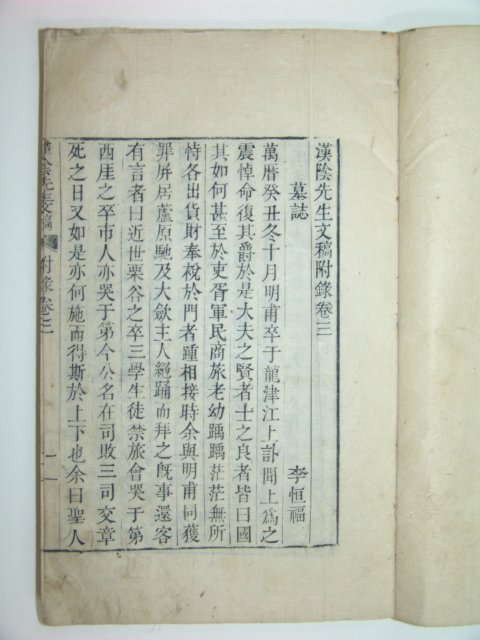 漢陰先生文稿附錄卷三
墓誌 李恒福
萬曆癸丑冬十月明甫卒于龍津江上訃聞上爲之
震悼命復其爵於是大夫之賢者士之良者皆曰國
其如何甚至於吏胥軍民商旅老幼踽踽茫茫無所
恃各出貨財奉稅於門者踵相接時余與明甫同獲
罪屏居蘆原馳及大斂主人絕踊而拜之旣事還客
有言者曰近世栗谷之卒三學生徒禁旅會哭于第
西厓之卒市人亦哭于第今公名在司敗三司交章
死之日又如是亦何施而得斯於上下也余曰聖人
漢陰先生文稿 附錄卷三 一